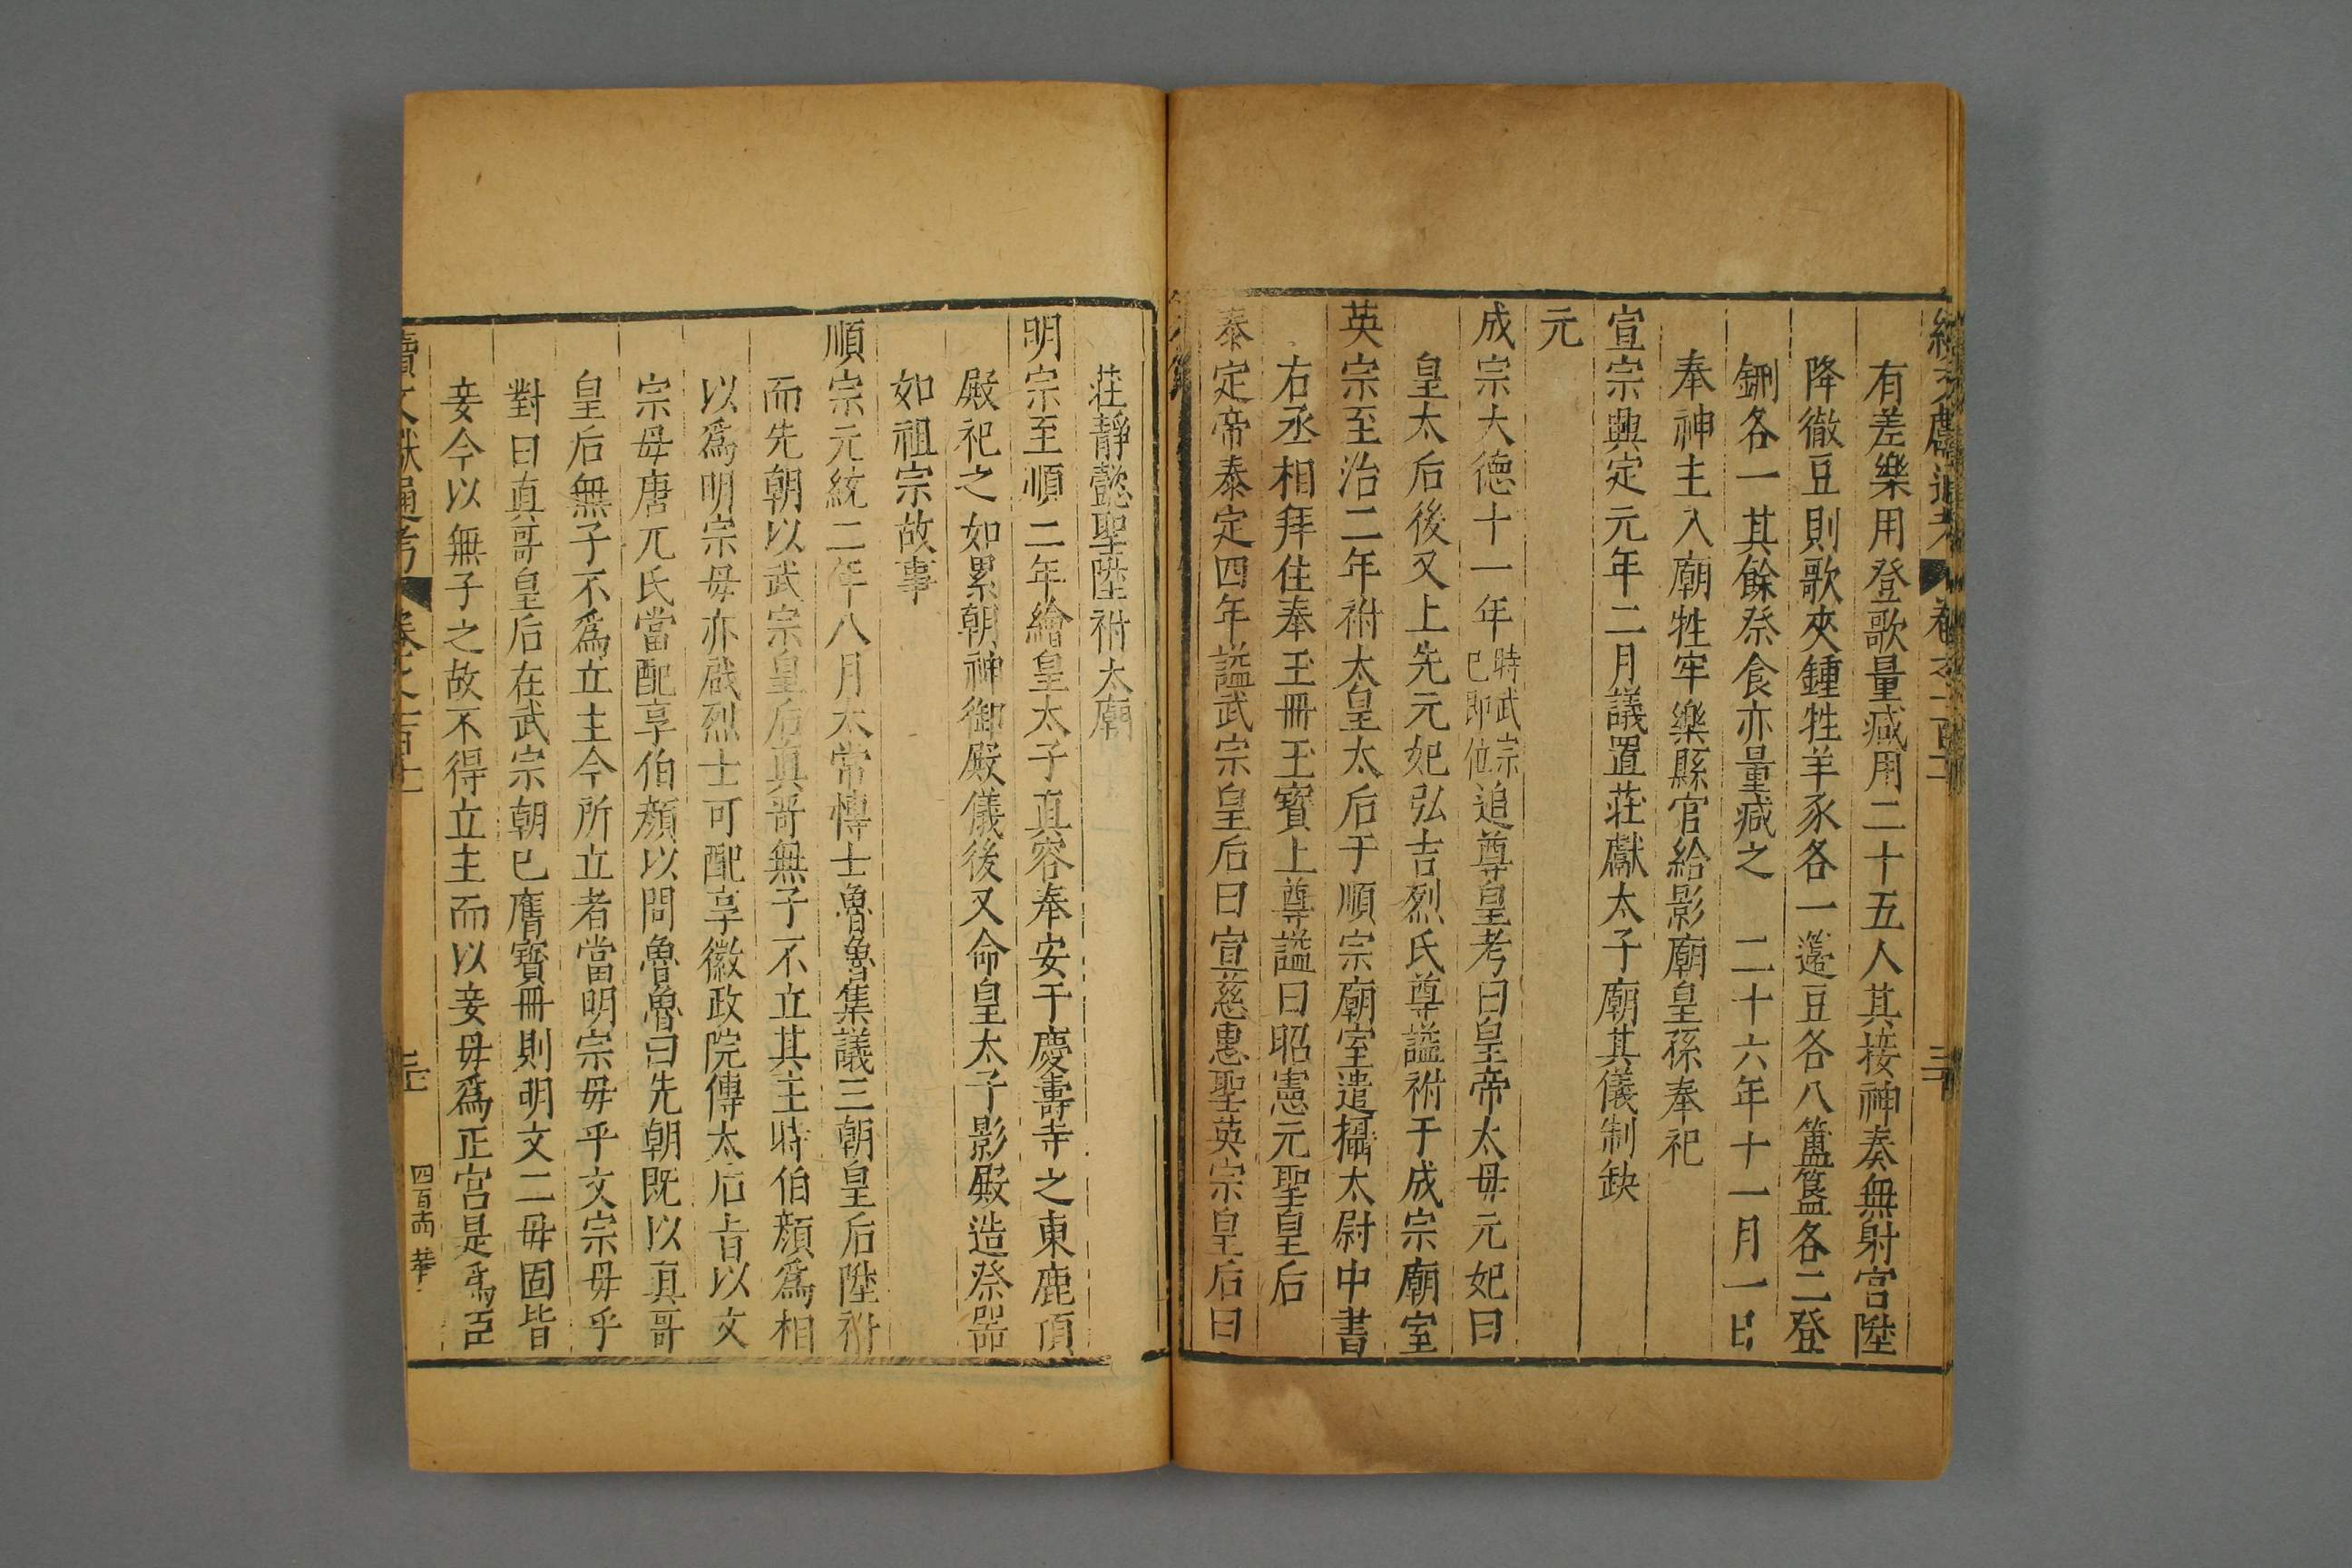 有差樂用登歌量減用二十五人其接神奏無射宮陞
降徹豆則歌夾鍾牲羊豕各一籩豆各八簠簋各二登
鉶各一其餘祭食亦量減之 二十六年十一月一日
奉神主入廟牲牢樂縣官給影廟皇孫奉祀
宣宗興定元年二月議置莊獻太子廟其儀制缺
元
成宗大德十一年時武宗已即位追尊皇考曰皇帝太母元妃曰
皇太后後又上先元妃弘吉烈氏尊諡祔于成宗廟室
英宗至治二年祔太皇太后于順宗廟室遣攝太尉中書
右丞相拜住奉玉冊玉寶上尊謚曰昭憲元聖皇后
泰定帝泰定四年謚武宗皇后曰宣慈惠聖英宗皇后曰
莊靜懿聖陞祔太廟
明宗至順二年繪皇太子真容奉安于慶壽寺之東鹿頂
殿祀之如累朝神御殿儀後又命皇太子影殿造祭器
如祖宗故事
順宗元統二年八月太常博士魯魯集議三朝皇后陞祔
而先朝以武宗皇后真哥無子不立其主時伯顏為相
以為明宗母亦啟烈士可配享徽政院傳太后㫖以文
宗母唐兀氏當配享伯顏以問魯魯曰先朝既以真哥
皇后無子不為立主今所立者當明宗母乎文宗母乎
對曰真哥皇后在武宗朝已膺寶冊則明文二母固皆
妾今以無子之故不得立主而以妾母為正宮是為臣
續文獻通考 卷之一百十
四百丙 華